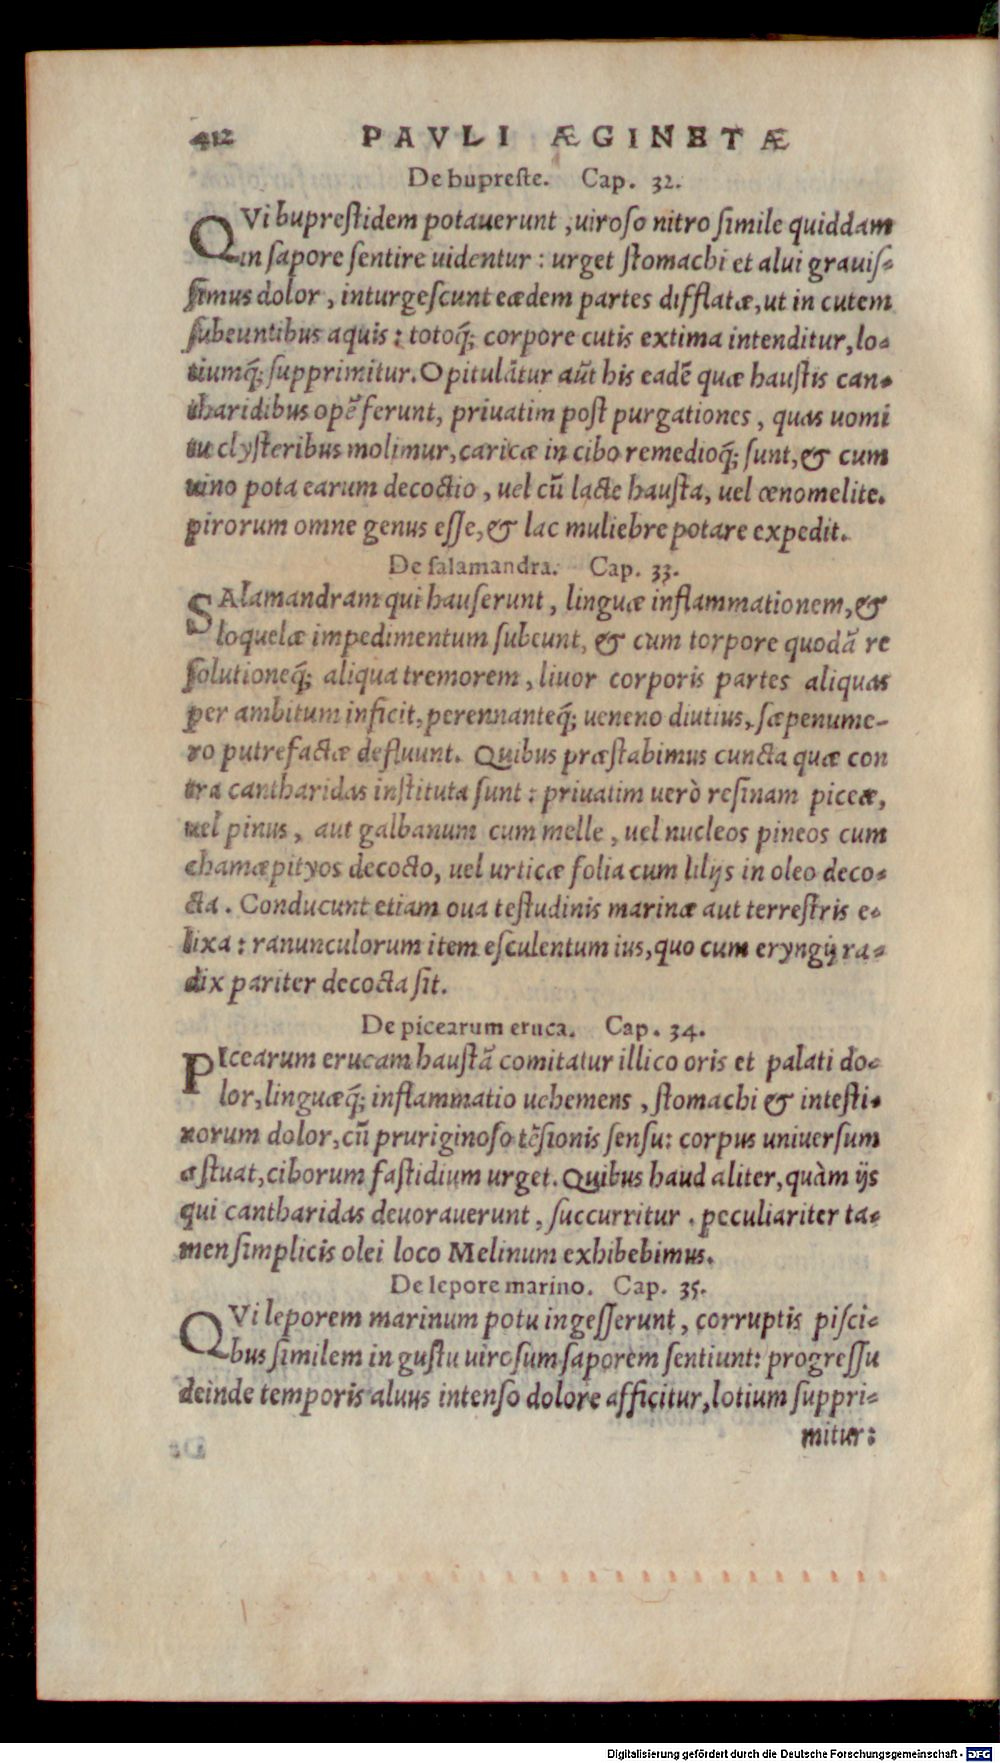 412 PAVLI ÆGINETÆ
De bupreste. Cap. 32.
QVi buprestidem potauerunt, uiroso nitro simile quiddam
in sapore sentire uidentur: urget stomachi et alui grauis-
simus dolor, inturgescunt eædem partes difflatæ, ut in cutem
subeuntibus aquis: totoq́; corpore cutis extima intenditur, lo-
tiumq́; supprimitur. Opitulãtur aũt his eadẽ quæ haustis can-
tharidibus opẽ ferunt, priuatim post purgationes, quas uomi
tu clysteribus molimur, caricæ in cibo remedioq́; sunt, & cum
uino pota earum decoctio, uel cũ lacte hausta, uel œnomelite.
pirorum omne genus esse, & lac muliebre potare expedit.
De salamandra. Cap. 33.
SAlamandram qui hauserunt, linguæ inflammationem, &
loquelæ impedimentum subeunt, & cum torpore quodã re
solutioneq́; aliqua tremorem, liuor corporis partes aliquas
per ambitum inficit, perennanteq́; ueneno diutius, sæpenume-
ro putrefactæ defluunt. Quibus præstabimus cuncta quæ con
tra cantharidas instituta sunt: priuatim uerò resinam piceæ,
uel pinus, aut galbanum cum melle, uel nucleos pineos cum
chamæpityos decocto, uel urticæ folia cum lilijs in oleo deco-
cta. Conducunt etiam oua testudinis marinæ aut terrestris e-
lixa: ranunculorum item esculentum ius, quo cum eryngij ra-
dix pariter decocta sit.
De picearum eruca. Cap. 34.
PIcearum erucam haustã comitatur illico oris et palati do-
lor, linguæq́; inflammatio uehemens, stomachi & intesti-
norum dolor, cũ pruriginoso tẽsionis sensu: corpus uniuersum
æstuat, ciborum fastidium urget. Quibus haud aliter, quàm ijs
qui cantharidas deuorauerunt, succurritur. peculiariter ta-
men simplicis olei loco Melinum exhibebimus.
De lepore marino. Cap. 35.
QVi leporem marinum potu ingesserunt, corruptis pisci-
bus similem in gustu uirosum saporem sentiunt: progressu
deinde temporis aluus intenso dolore afficitur, lotium suppri-
mitur:
Digitalisierung gefördert durch die Deutsche Forschungsgemeinschaft - DFG